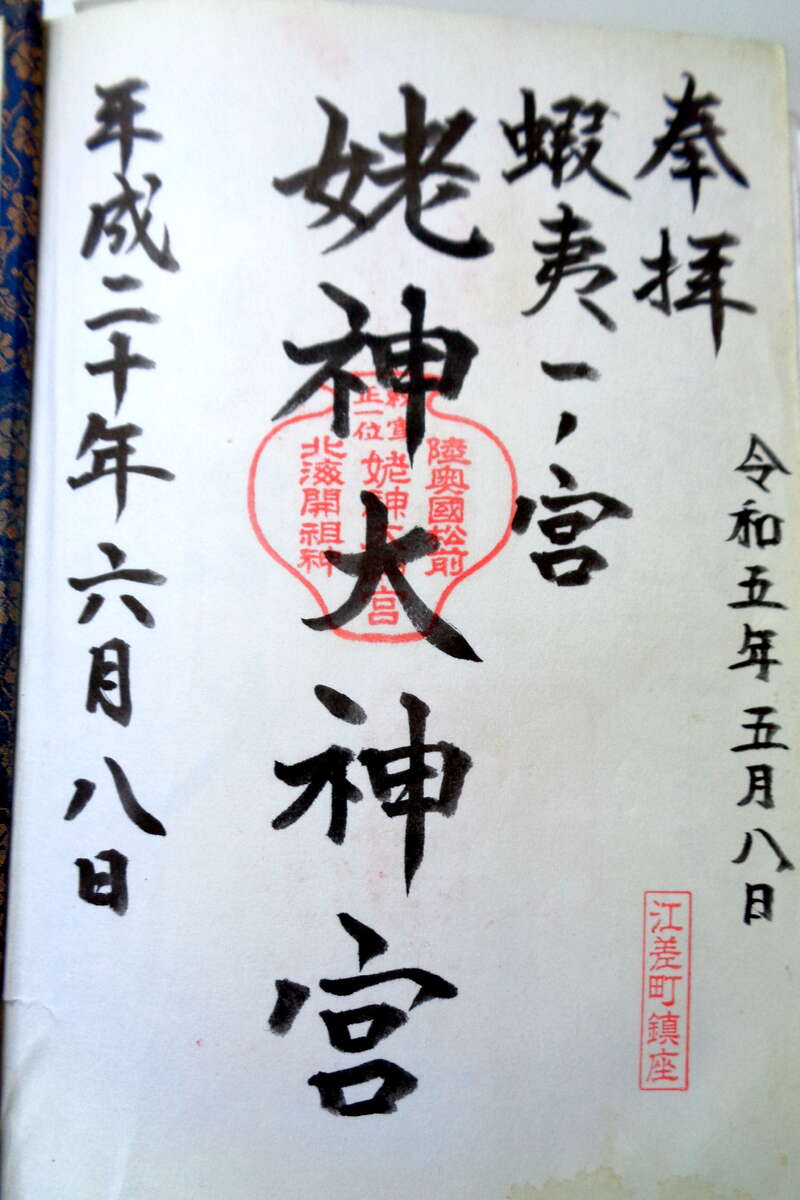 奉拝
令和五年五月八日
蝦夷一ノ宮
姥神大神宮
平成二十年六月八日
陸奥國松前
勅宣
正一位
姥神大神宮
北海開祖神
江差町鎮座